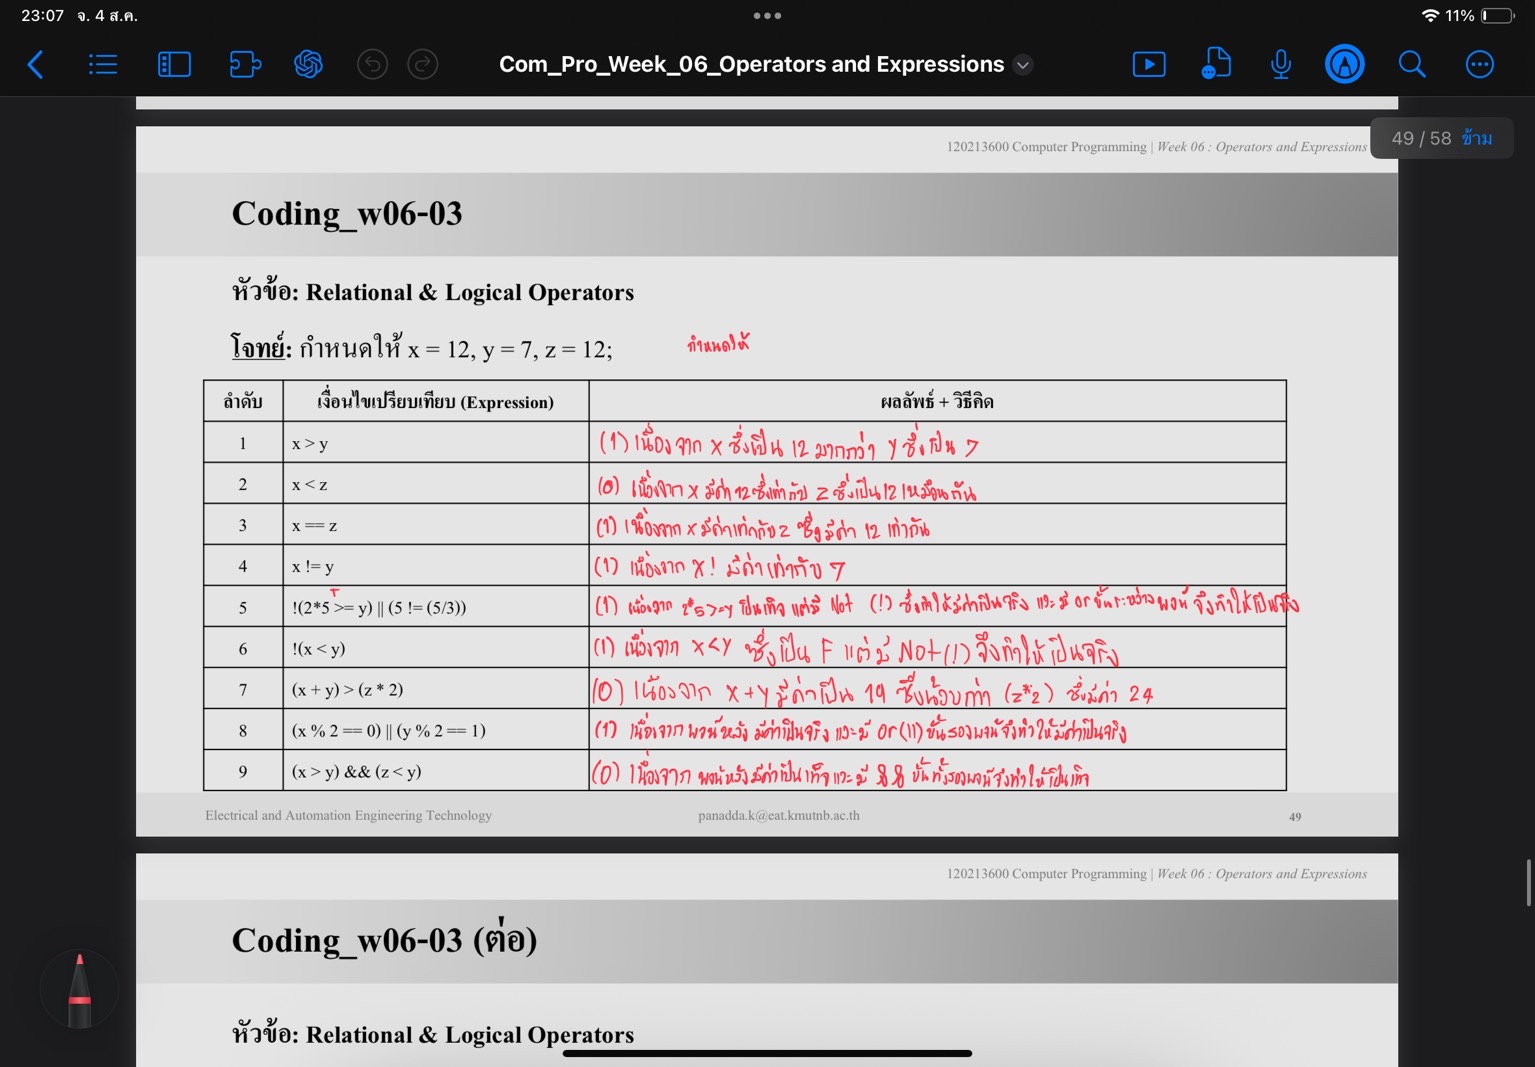 23:07 จ. 4 ส.ค.
11%
Com_Pro_Week_06_Operators and Expressions
49 / 58 ข้าม
120213600 Computer Programming | Week 06 : Operators and Expressions
Coding_w06-03
หัวข้อ: Relational & Logical Operators
โจทย์: กำหนดให้ x = 12, y = 7, z = 12;
กำหนดให้
ลำดับ เงื่อนไขเปรียบเทียบ (Expression) ผลลัพธ์ + วิธีคิด
1 x > y (1) เนื่องจาก x ซึ่งเป็น 12 มากกว่า y ซึ่งเป็น 7
2 x < z (0) เนื่องจาก x มีค่า 12 ซึ่งเท่ากับ z ซึ่งเป็น 12 เหมือนกัน
3 x == z (1) เนื่องจาก x มีค่าเท่ากับ z ซึ่งมีค่า 12 เท่ากัน
4 x != y (1) เนื่องจาก x! มีค่าเท่ากับ 7
T
5 !(2*5 >= y) || (5 != (5/3)) (1) เนื่องจาก 2*5 >= y เป็นเท็จ แต่มี Not (!) ซึ่งทำให้มีค่าเป็นจริง และมี or ขั้นระหว่างพจน์ จึงทำให้เป็นจริง
6 !(x < y) (1) เนื่องจาก x < y ซึ่งเป็น F แต่มี Not (!) จึงทำให้เป็นจริง
7 (x + y) > (z * 2) (0) เนื่องจาก x + y มีค่าเป็น 19 ซึ่งน้อยกว่า (z*2) ซึ่งมีค่า 24
8 (x % 2 == 0) || (y % 2 == 1) (1) เนื่องจากพจน์หลังมีค่าเป็นจริง และมี or (||) ขั้นสองพจน์จึงทำให้มีค่าเป็นจริง
9 (x > y) && (z < y) (0) เนื่องจาก พจน์หลังมีค่าเป็นเท็จ และมี && ขั้นทั้งสองพจน์จึงทำให้เป็นเท็จ
Electrical and Automation Engineering Technology panadda.k@eat.kmutnb.ac.th 49
120213600 Computer Programming | Week 06 : Operators and Expressions
Coding_w06-03 (ต่อ)
หัวข้อ: Relational & Logical Operators